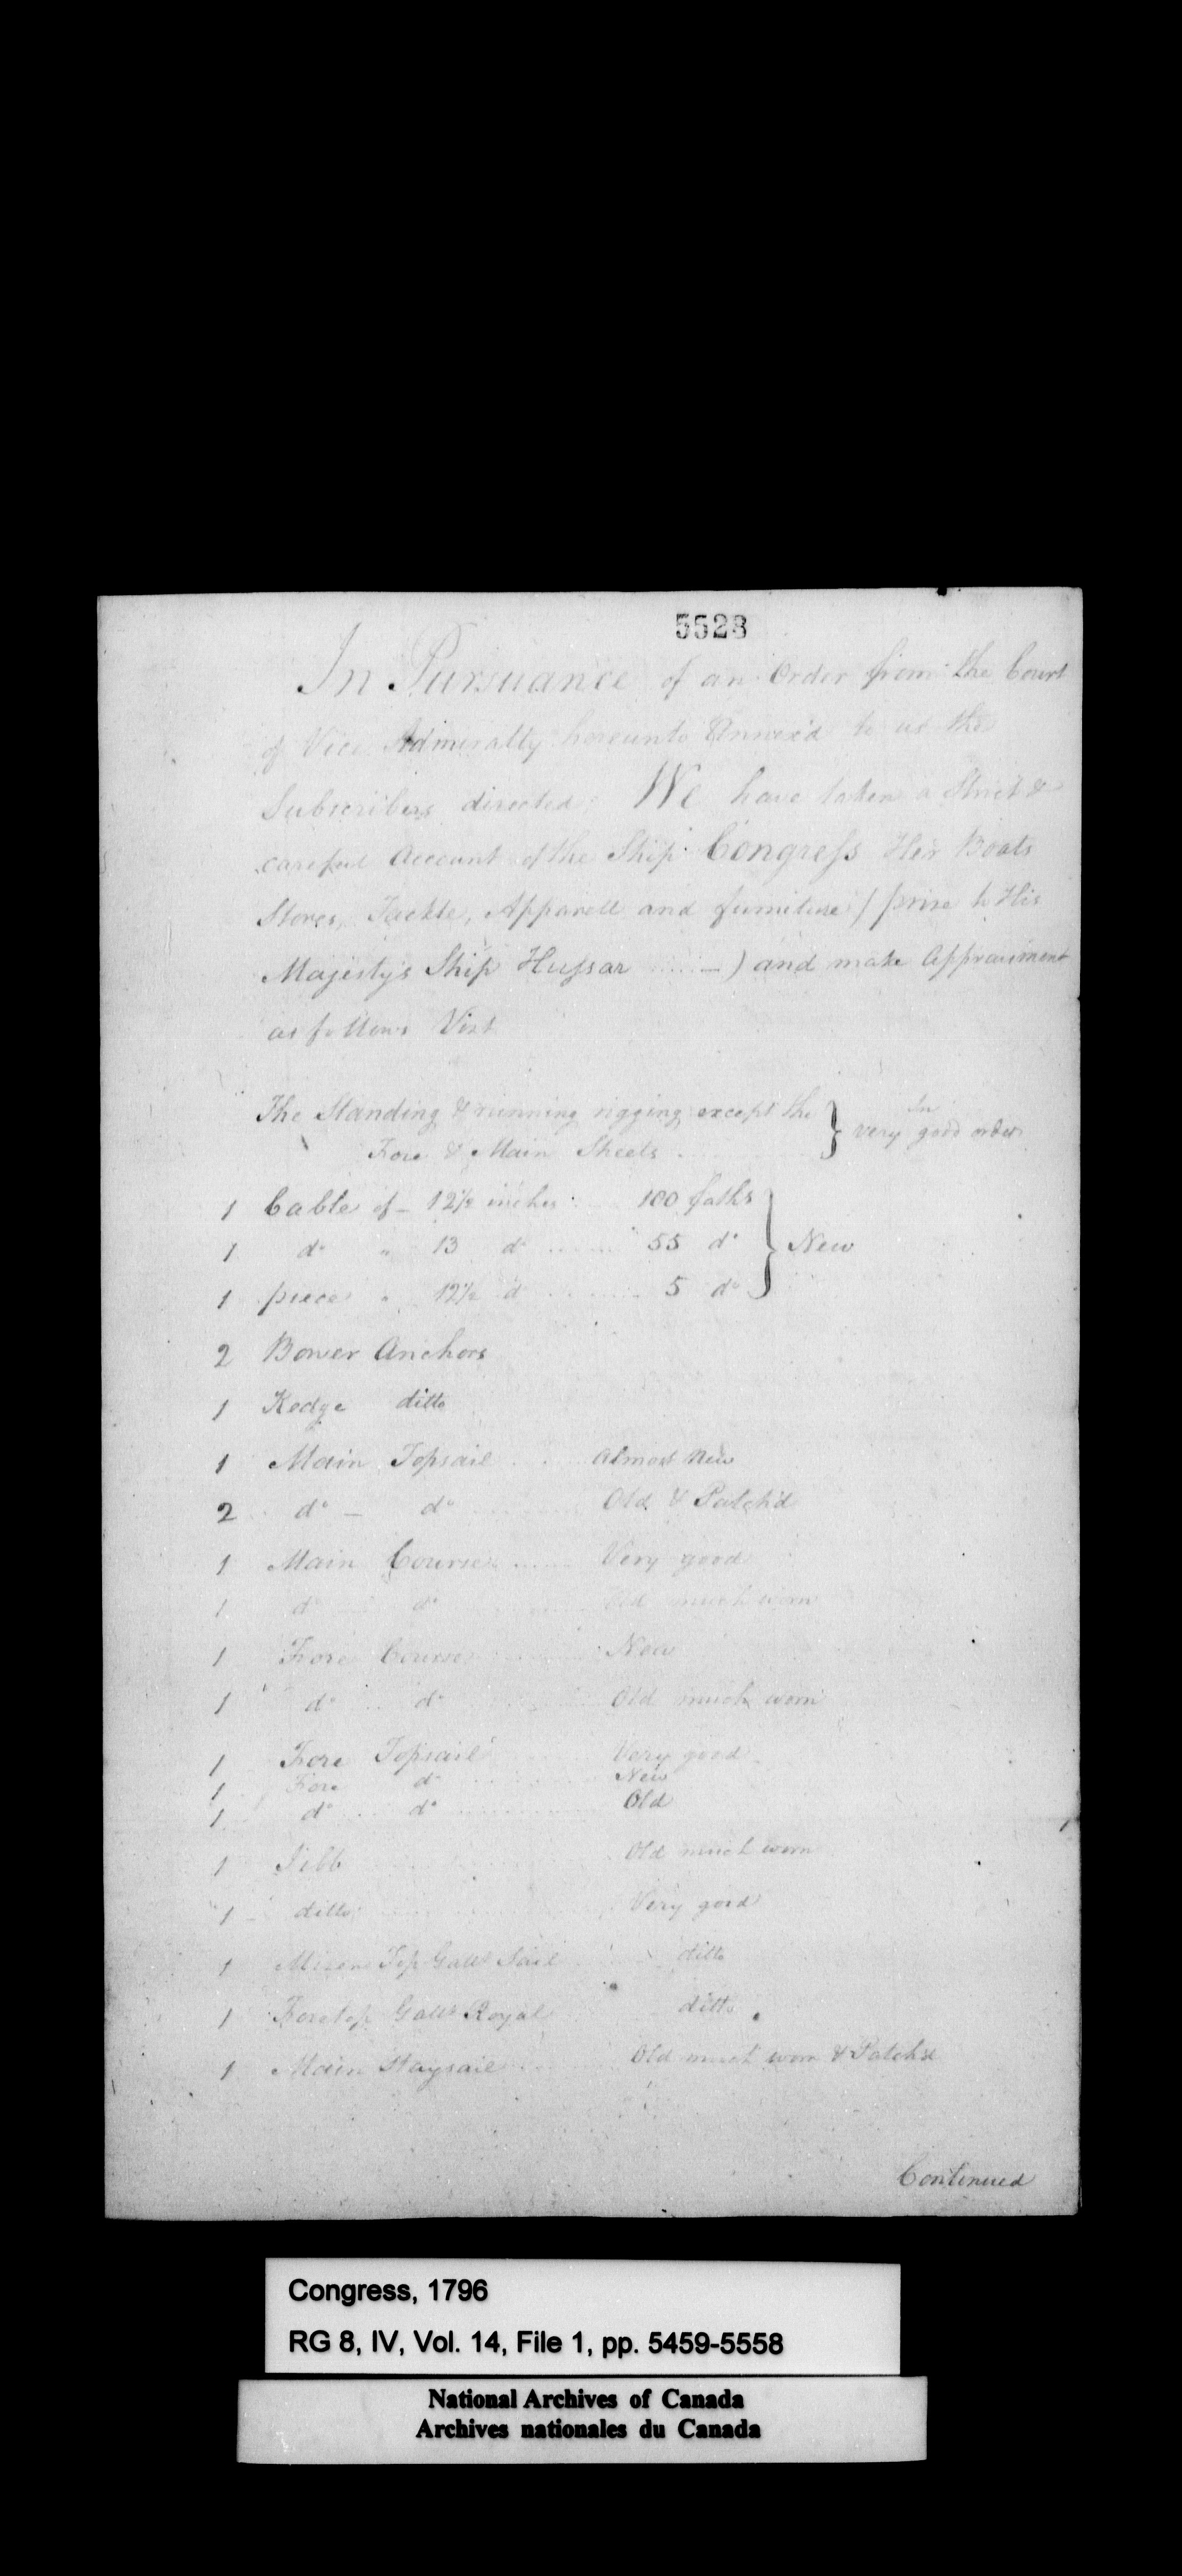 5528
In Pursuance of an Order from the Court
of Vice Admiralty hereunto Annex'd to us the
Subscribers directed We have taken a Strict &
careful Account of the Ship Congress Her Boats
Stores, Tackle, Apparell and furniture / prize to His
Majesty's Ship Hussar ..... — ) and make Appraisment
as follows Vizt
The Standing & running rigging except the
Fore & Main Sheets } In very good order
1 Cable of — 12½ inches ..... 100 faths
1 do " 13 do ....... 55 do } New
1 piece " 12½ do ......... 5 do
2 Bower Anchors
1 Kedge ditto
1 Main Topsail .... Almost New
2 do — do ........ Old & Patch'd
1 Main Course ...... Very good
1 do do ...... Old much worn
1 Fore Course ...... New
1 do .. do ...... Old much worn
1 Fore Topsail ..... Very good
1 Fore do ........ New
1 do ... do ........... Old
1 Jibb Old much worn
1 ditto Very good
1 Mizen Top Gallt Sail ditto
1 Foretop Gallt Royal ditto
1 Main Staysail ... Old much worn & Patch'd
Continued
Congress, 1796
RG 8, IV, Vol. 14, File 1, pp. 5459-5558
National Archives of Canada
Archives nationales du Canada